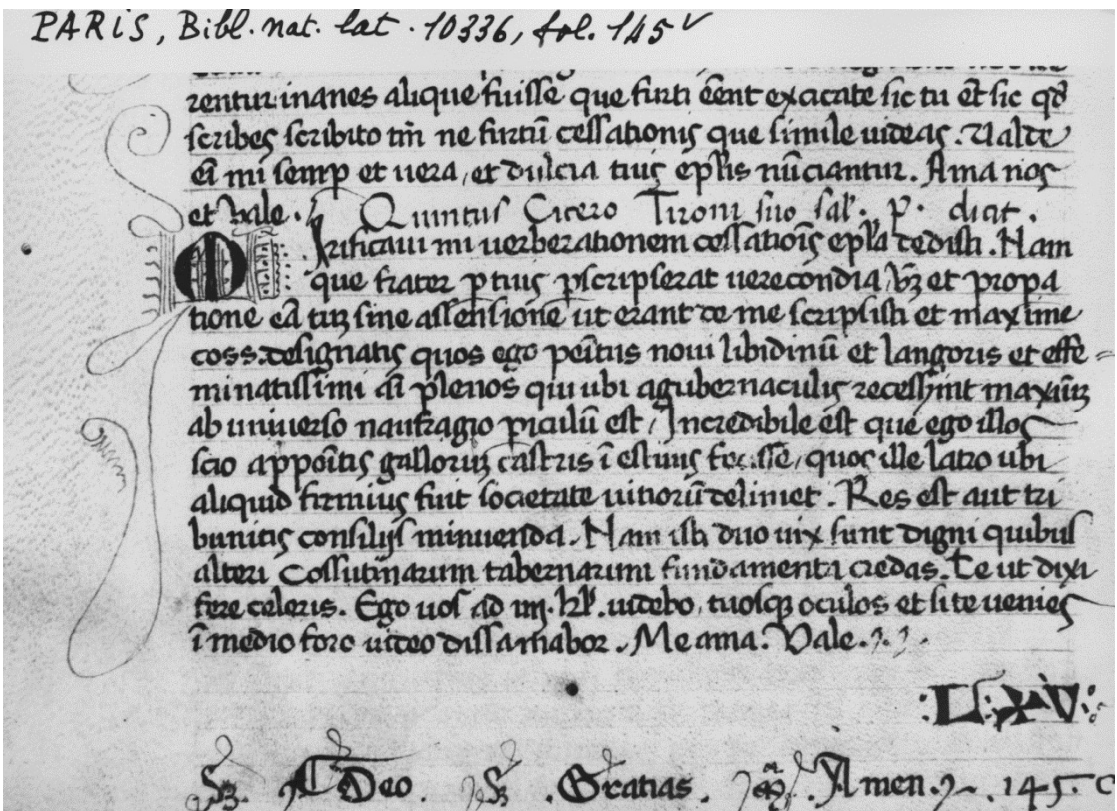 PARIS, Bibl. nat. lat. 10336, fol. 145v
rentur. inanes alique fuisse que furti eēnt ex acitate sic tu et sic qđ
scribes scribito tm̄ ne furtū cessationis que simile uideas. Valde
eī mi semp et uera, et dulcia tuis epl̄is nūciantur. Ama nos
et vale.
Quintus Cicero Tironi suo sal. p. dicit.
Mirificaui mi uerberationem cessatioīs epl̄a dedisti. Nam
que frater ptius pscripserat uerecondia, uz et propa
tione eā tuz sine assensione ut erant de me scripsisti et maxime
coss. designatis quos ego peītus noui libidinū et langoris et effe=
minatissimi aī plenos qui ubi agubernaculis recesserint maxīuz
ab uniuerso naufragio piculū est, Incredibile est que ego illos
scio appoītis galloruz castris ī estiuis fecisse, quos ille latro ubi
aliquid firmius fuit societate uitiorū deliniet. Res est aut tri
bunitis consilijs minuenda. Nam isti duo uix sunt digni quibus
alteri Cossutinarum tabernarum fundamenta credas. Te ut dixi
fere celeris. Ego uos ad iij. kl̄. uidebo, tuosqz oculos et si te uenies
ī medio foro uideo dissamabor. Me ama. Vale.
Deo Gratias. Amen. 145